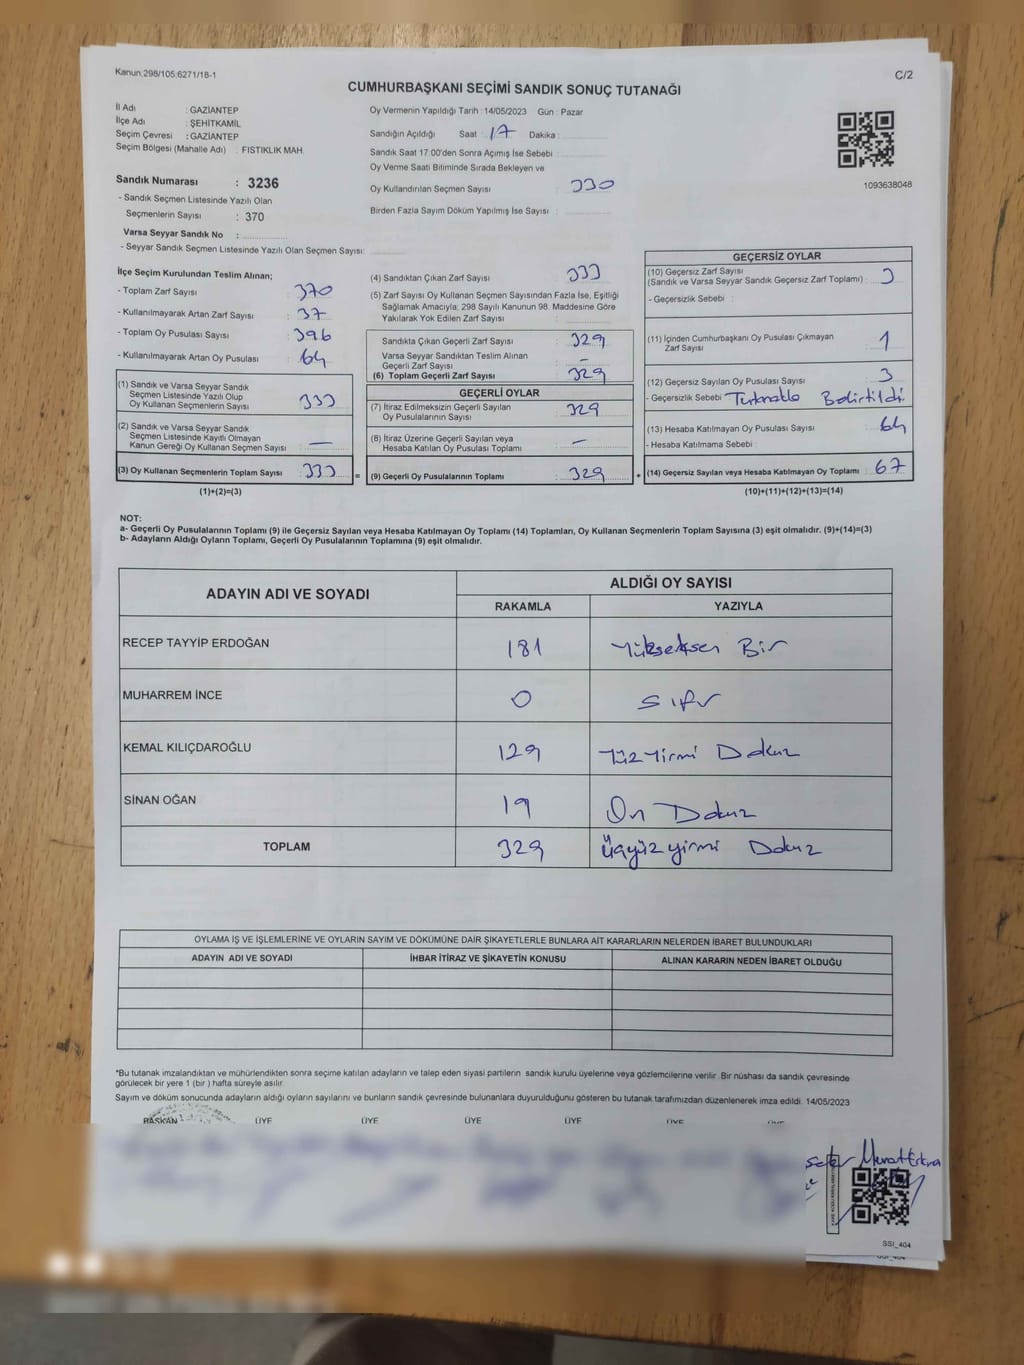 Kanun;298/105,6271/18-1
C/2
CUMHURBAŞKANI SEÇİMİ SANDIK SONUÇ TUTANAĞI
İl Adı : GAZİANTEP
İlçe Adı : ŞEHİTKAMİL
Seçim Çevresi : GAZİANTEP
Seçim Bölgesi (Mahalle Adı) : FISTIKLIK MAH.
Sandık Numarası : 3236
- Sandık Seçmen Listesinde Yazılı Olan
Seçmenlerin Sayısı : 370
Varsa Seyyar Sandık No :
- Seyyar Sandık Seçmen Listesinde Yazılı Olan Seçmen Sayısı:
Oy Vermenin Yapıldığı Tarih : 14/05/2023 Gün : Pazar
Sandığın Açıldığı Saat : 17 Dakika :
Sandık Saat 17:00'den Sonra Açımış İse Sebebi :
Oy Verme Saati Bitiminde Sırada Bekleyen ve
Oy Kullandırılan Seçmen Sayısı : 330
Birden Fazla Sayım Döküm Yapılmış İse Sayısı :
1093638048
İlçe Seçim Kurulundan Teslim Alınan;
- Toplam Zarf Sayısı : 370
- Kullanılmayarak Artan Zarf Sayısı : 37
- Toplam Oy Pusulası Sayısı : 396
- Kullanılmayarak Artan Oy Pusulası : 64
(1) Sandık ve Varsa Seyyar Sandık
Seçmen Listesinde Yazılı Olup
Oy Kullanan Seçmenlerin Sayısı : 333
(2) Sandık ve Varsa Seyyar Sandık
Seçmen Listesinde Kayıtlı Olmayan
Kanun Gereği Oy Kullanan Seçmen Sayısı : —
(3) Oy Kullanan Seçmenlerin Toplam Sayısı : 333 =
(1)+(2)=(3)
(4) Sandıktan Çıkan Zarf Sayısı : 333
(5) Zarf Sayısı Oy Kullanan Seçmen Sayısından Fazla İse, Eşitliği
Sağlamak Amacıyla; 298 Sayılı Kanunun 98. Maddesine Göre
Yakılarak Yok Edilen Zarf Sayısı :
Sandıkta Çıkan Geçerli Zarf Sayısı : 329
Varsa Seyyar Sandıktan Teslim Alınan
Geçerli Zarf Sayısı : —
(6) Toplam Geçerli Zarf Sayısı : 329
GEÇERLİ OYLAR
(7) İtiraz Edilmeksizin Geçerli Sayılan
Oy Pusulalarının Sayısı : 329
(8) İtiraz Üzerine Geçerli Sayılan veya
Hesaba Katılan Oy Pusulası Toplamı : —
(9) Geçerli Oy Pusulalarının Toplamı : 329 +
GEÇERSİZ OYLAR
(10) Geçersiz Zarf Sayısı
(Sandık ve Varsa Seyyar Sandık Geçersiz Zarf Toplamı) : 3
- Geçersizlik Sebebi :
(11) İçinden Cumhurbaşkanı Oy Pusulası Çıkmayan
Zarf Sayısı : 1
(12) Geçersiz Sayılan Oy Pusulası Sayısı : 3
- Geçersizlik Sebebi : Tutanakla Belirtildi.
(13) Hesaba Katılmayan Oy Pusulası Sayısı : 64
- Hesaba Katılmama Sebebi :
(14) Geçersiz Sayılan veya Hesaba Katılmayan Oy Toplamı : 67
(10)+(11)+(12)+(13)=(14)
NOT:
a- Geçerli Oy Pusulalarının Toplamı (9) ile Geçersiz Sayılan veya Hesaba Katılmayan Oy Toplamı (14) Toplamları, Oy Kullanan Seçmenlerin Toplam Sayısına (3) eşit olmalıdır. (9)+(14)=(3)
b- Adayların Aldığı Oyların Toplamı, Geçerli Oy Pusulalarının Toplamına (9) eşit olmalıdır.
ADAYIN ADI VE SOYADI
ALDIĞI OY SAYISI
RAKAMLA YAZIYLA
RECEP TAYYİP ERDOĞAN 181 Yükseksen Bir
MUHARREM İNCE 0 Sıfır
KEMAL KILIÇDAROĞLU 129 Yüz Yirmi Dokuz
SİNAN OĞAN 19 On Dokuz
TOPLAM 329 Üçyüz yirmi Dokuz
OYLAMA İŞ VE İŞLEMLERİNE VE OYLARIN SAYIM VE DÖKÜMÜNE DAİR ŞİKAYETLERLE BUNLARA AİT KARARLARIN NELERDEN İBARET BULUNDUKLARI
ADAYIN ADI VE SOYADI İHBAR İTİRAZ VE ŞİKAYETİN KONUSU ALINAN KARARIN NEDEN İBARET OLDUĞU
*Bu tutanak imzalandıktan ve mühürlendikten sonra seçime katılan adayların ve talep eden siyasi partilerin sandık kurulu üyelerine veya gözlemcilerine verilir. Bir nüshası da sandık çevresinde
görülecek bir yere 1 (bir ) hafta süreyle asılır.
Sayım ve döküm sonucunda adayların aldığı oyların sayılarını ve bunların sandık çevresinde bulunanlara duyurulduğunu gösteren bu tutanak tarafımızdan düzenlenerek imza edildi. 14/05/2023
BAŞKAN ÜYE ÜYE ÜYE ÜYE ÜYE ÜYE
SSI_404